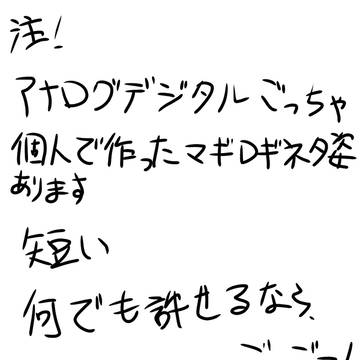 注!
アナログデジタルごっちゃ
個人で作ったマギロギネタ姿
あります
短い
何でも許せるなら、